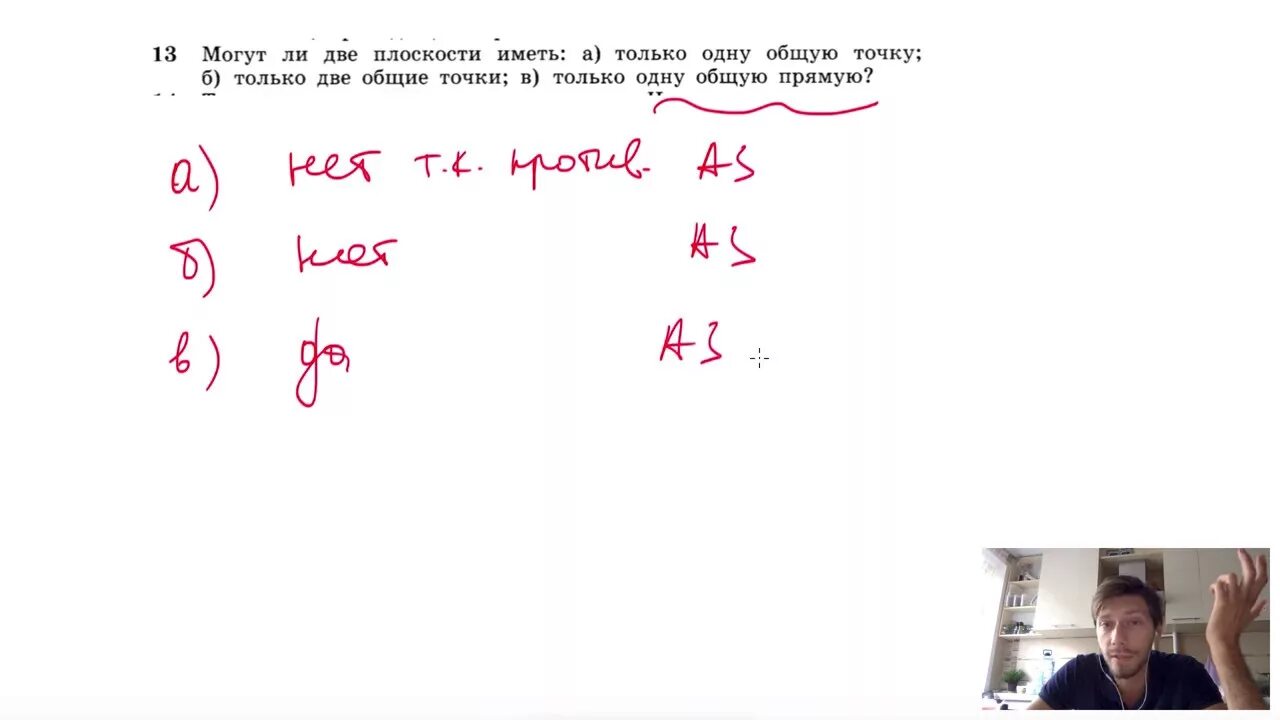 13 Могут ли две плоскости иметь: а) только одну общую точку;
б) только две общие точки; в) только одну общую прямую?
а) нет т.к. против. А3
б) нет А3
в) да А3